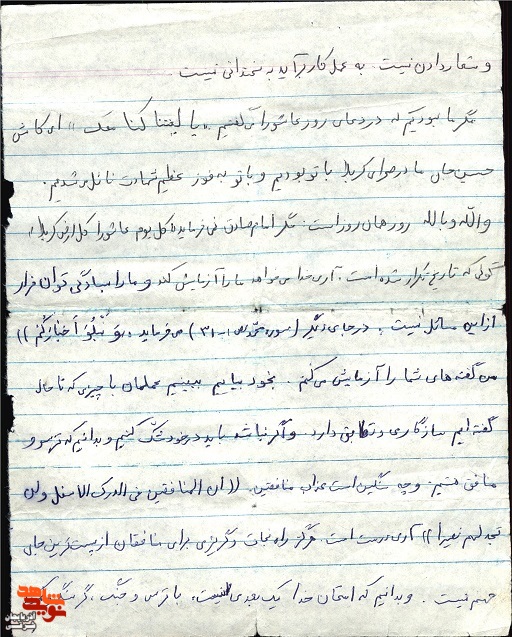 و شعار دادن نیست به عمل کار برآید به سخندانی نیست
مگر ما نبودیم که در دعای روز عاشورا می گفتیم «یا لیتنا کنا معک» ای کاش
حسین جان ما در صحرای کربلا با تو بودیم و با تو به فوز عظیم شهادت نائل می شدیم.
والله و بالله روز همان روز است. مگر امام صادق نمی فرماید «کل یوم عاشورا کل ارض کربلا»
گوئی که تاریخ تکرار شده است. آری خدا می خواهد ما را آزمایش کند و ما را بسادگی توان فرار
از این مسائل نیست. در جای دیگر (سوره محمد ص ۳۱) می فرماید «وَ نَبْلُوَا أَخْبارَکُمْ))
من گفته های شما را آزمایش می کنم. بخود بیایم ببینیم عملمان با چیزی که تا حال
گفته ایم سازگاری و تطابق دارد و اگر نباشد باید در خود شک کنیم و بدانیم که ترسو و
منافق هستیم. و چه سنگین است عذاب منافقین. (( ان المنافقین فی الدرک الاسفل و لن
تجد لهم نصیرا)) آری درست است هرگز راه نجات و گریزی برای منافقان از پست ترین جای
جهنم نیست. و بدانیم که امتحان خدا یک بعدی نیست، با ترس و جنگ، گرسنگی
نوید شاهد